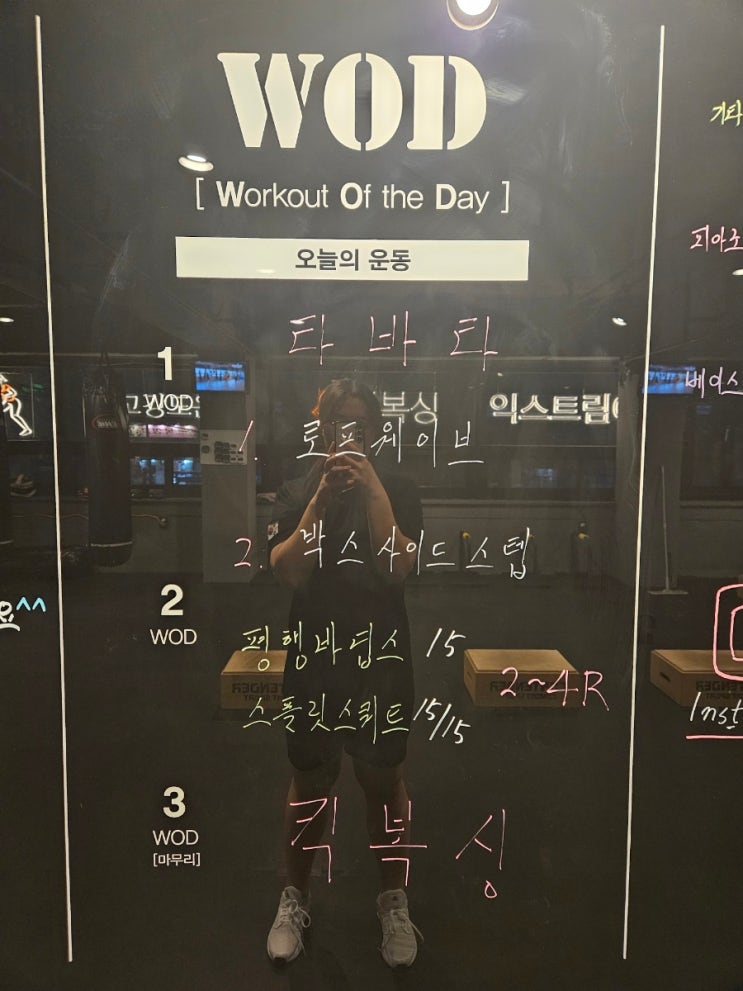 WOD
[ Workout Of the Day ]
오늘의 운동
1
WOD
타바타
1. 로프웨이브
2. 박스사이드스텝
2
WOD
평행바딥스 15
스플릿스쿼트 15/15
2~4R
3
WOD
[마무리]
킥복싱
복싱
익스트림
요^^
기타
피아조
베이스
Inst